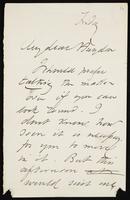 Friday
My dear
I would prefer
talking the matter
over if you can
look round. I
don't know how
soon it is necessary
for you to move
in it. But this
afternoon
would suit me